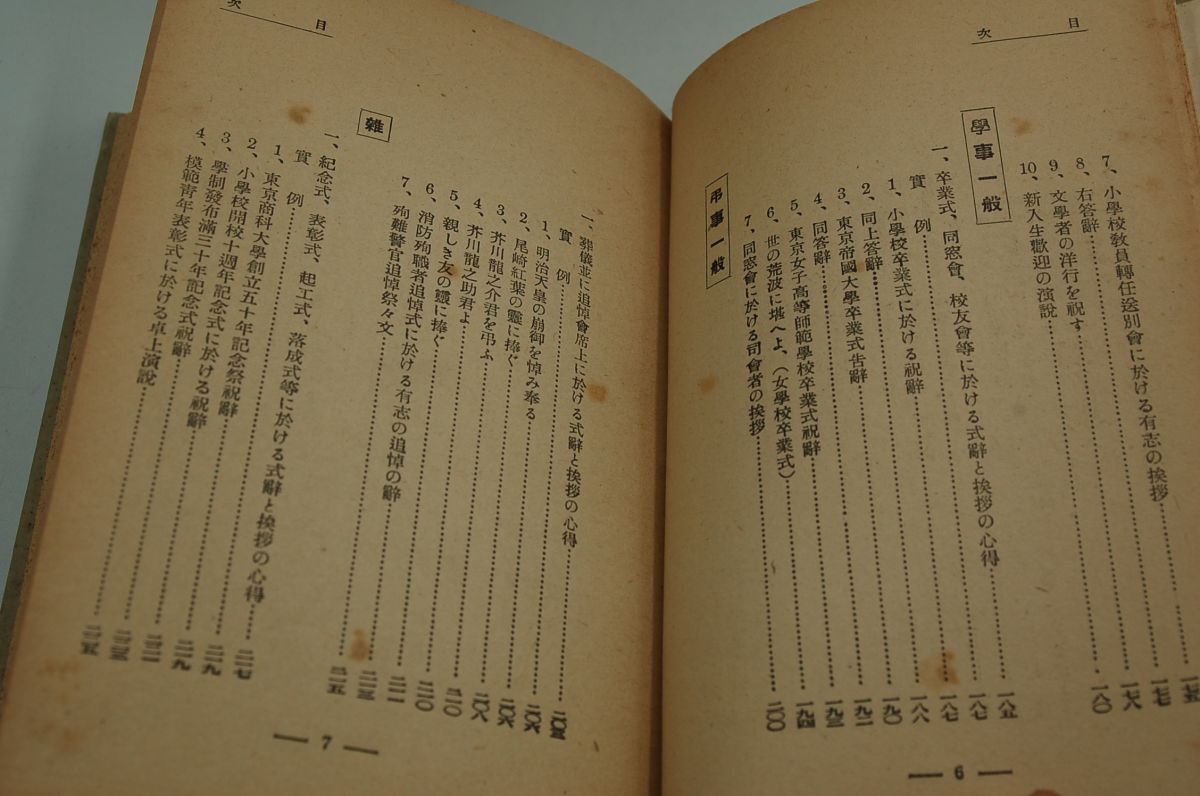 目次
7、小學校敎員轉任送別會に於ける有志の挨拶
8、右答辭
9、文學者の洋行を祝す
10、新入生歡迎の演說
學事一般
一、卒業式、同窓會、校友會等に於ける式辭と挨拶の心得
實例
1、小學校卒業式に於ける祝辭
2、同上答辭
3、東京帝國大學卒業式吿辭
4、同答辭
5、東京女子高等師範學校卒業式祝辭
6、世の荒波に堪へよ、(女學校卒業式)
7、同窓會に於ける司會者の挨拶
弔事一般
6
目次
一、葬儀並に追悼會席上に於ける式辭と挨拶の心得
實例
1、明治天皇の崩御を悼み奉る
2、尾崎紅葉の靈に捧ぐ
3、芥川龍之介君を弔ふ
4、芥川龍之助君よ
5、親しき友の靈に捧ぐ
6、消防殉職者追悼式に於ける有志の追悼の辭
7、殉難警官追悼祭々文
雜
一、紀念式、表彰式、起工式、落成式等に於ける式辭と挨拶の心得
實例
1、東京商科大學創立五十年記念祭祝辭
2、小學校開校十週年記念式に於ける祝辭
3、學制發布滿三十年記念式祝辭
4、模範靑年表彰式に於ける卓上演說
7